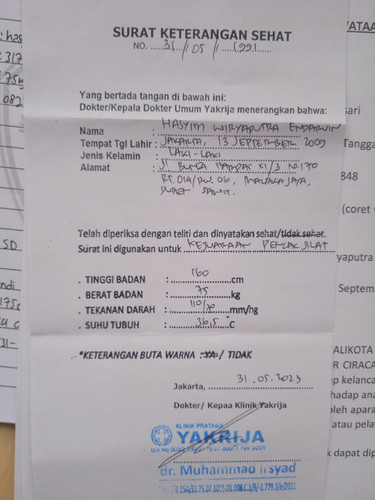 SURAT KETERANGAN SEHAT
NO. 31 / 05 / 1991
Yang bertada tangan di bawah ini:
Dokter/Kepala Dokter Umum Yakrija menerangkan bahwa:
Nama : HASYIM WIRYAPUTRA ENDARWIN
Tempat Tgl Lahir : JAKARTA, 13 SEPTEMBER 2009
Jenis Kelamin : LAKI-LAKI
Alamat : JL. BUNGA XI/3 NO. 170
RT. 014/RW. 06,
Telah diperiksa dengan teliti dan dinyatakan sehat/tidak sehat.
Surat ini digunakan untuk KEJUARAAN PENCAK SILAT
. TINGGI BADAN : 160 cm
. BERAT BADAN : 75 kg
. TEKANAN DARAH : 110/70 mm/hg
. SUHU TUBUH : 36,5 °C
*KETERANGAN BUTA WARNA : YA / TIDAK
Jakarta, 31.05.2023
Dokter/ Kepaa Klinik Yakrija
KLINIK PRATAMA
YAKRIJA
dr. Muhammad Irsyad
sari
Tangga
848
(coret
yaputra
Septem
ALIKOTA
R CIRACA
p kelanca
hadap ana
oleh apara
atau pela
k dapat dip
SD